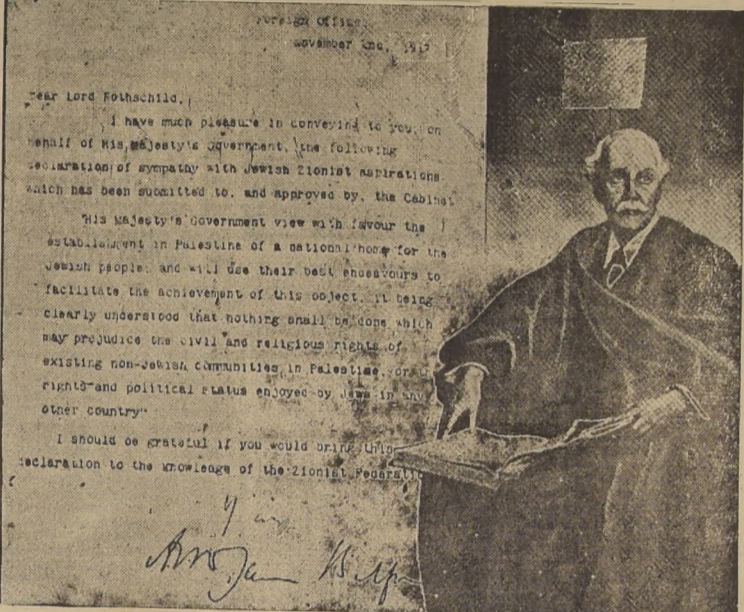 Foreign Office,
November 2nd, 1917
Dear Lord Rothschild,
I have much pleasure in conveying to you, on
behalf of His Majesty's Government, the following
declaration of sympathy with Jewish Zionist aspirations
which has been submitted to, and approved by, the Cabinet
"His Majesty's Government view with favour the
establishment in Palestine of a national home for the
Jewish people, and will use their best endeavours to
facilitate the achievement of this object, it being
clearly understood that nothing shall be done which
may prejudice the civil and religious rights of
existing non-Jewish communities in Palestine, or
rights and political status enjoyed by Jews in any
other country"
I should be grateful if you would bring this
declaration to the knowledge of the Zionist Federati
Arthur James Balfour